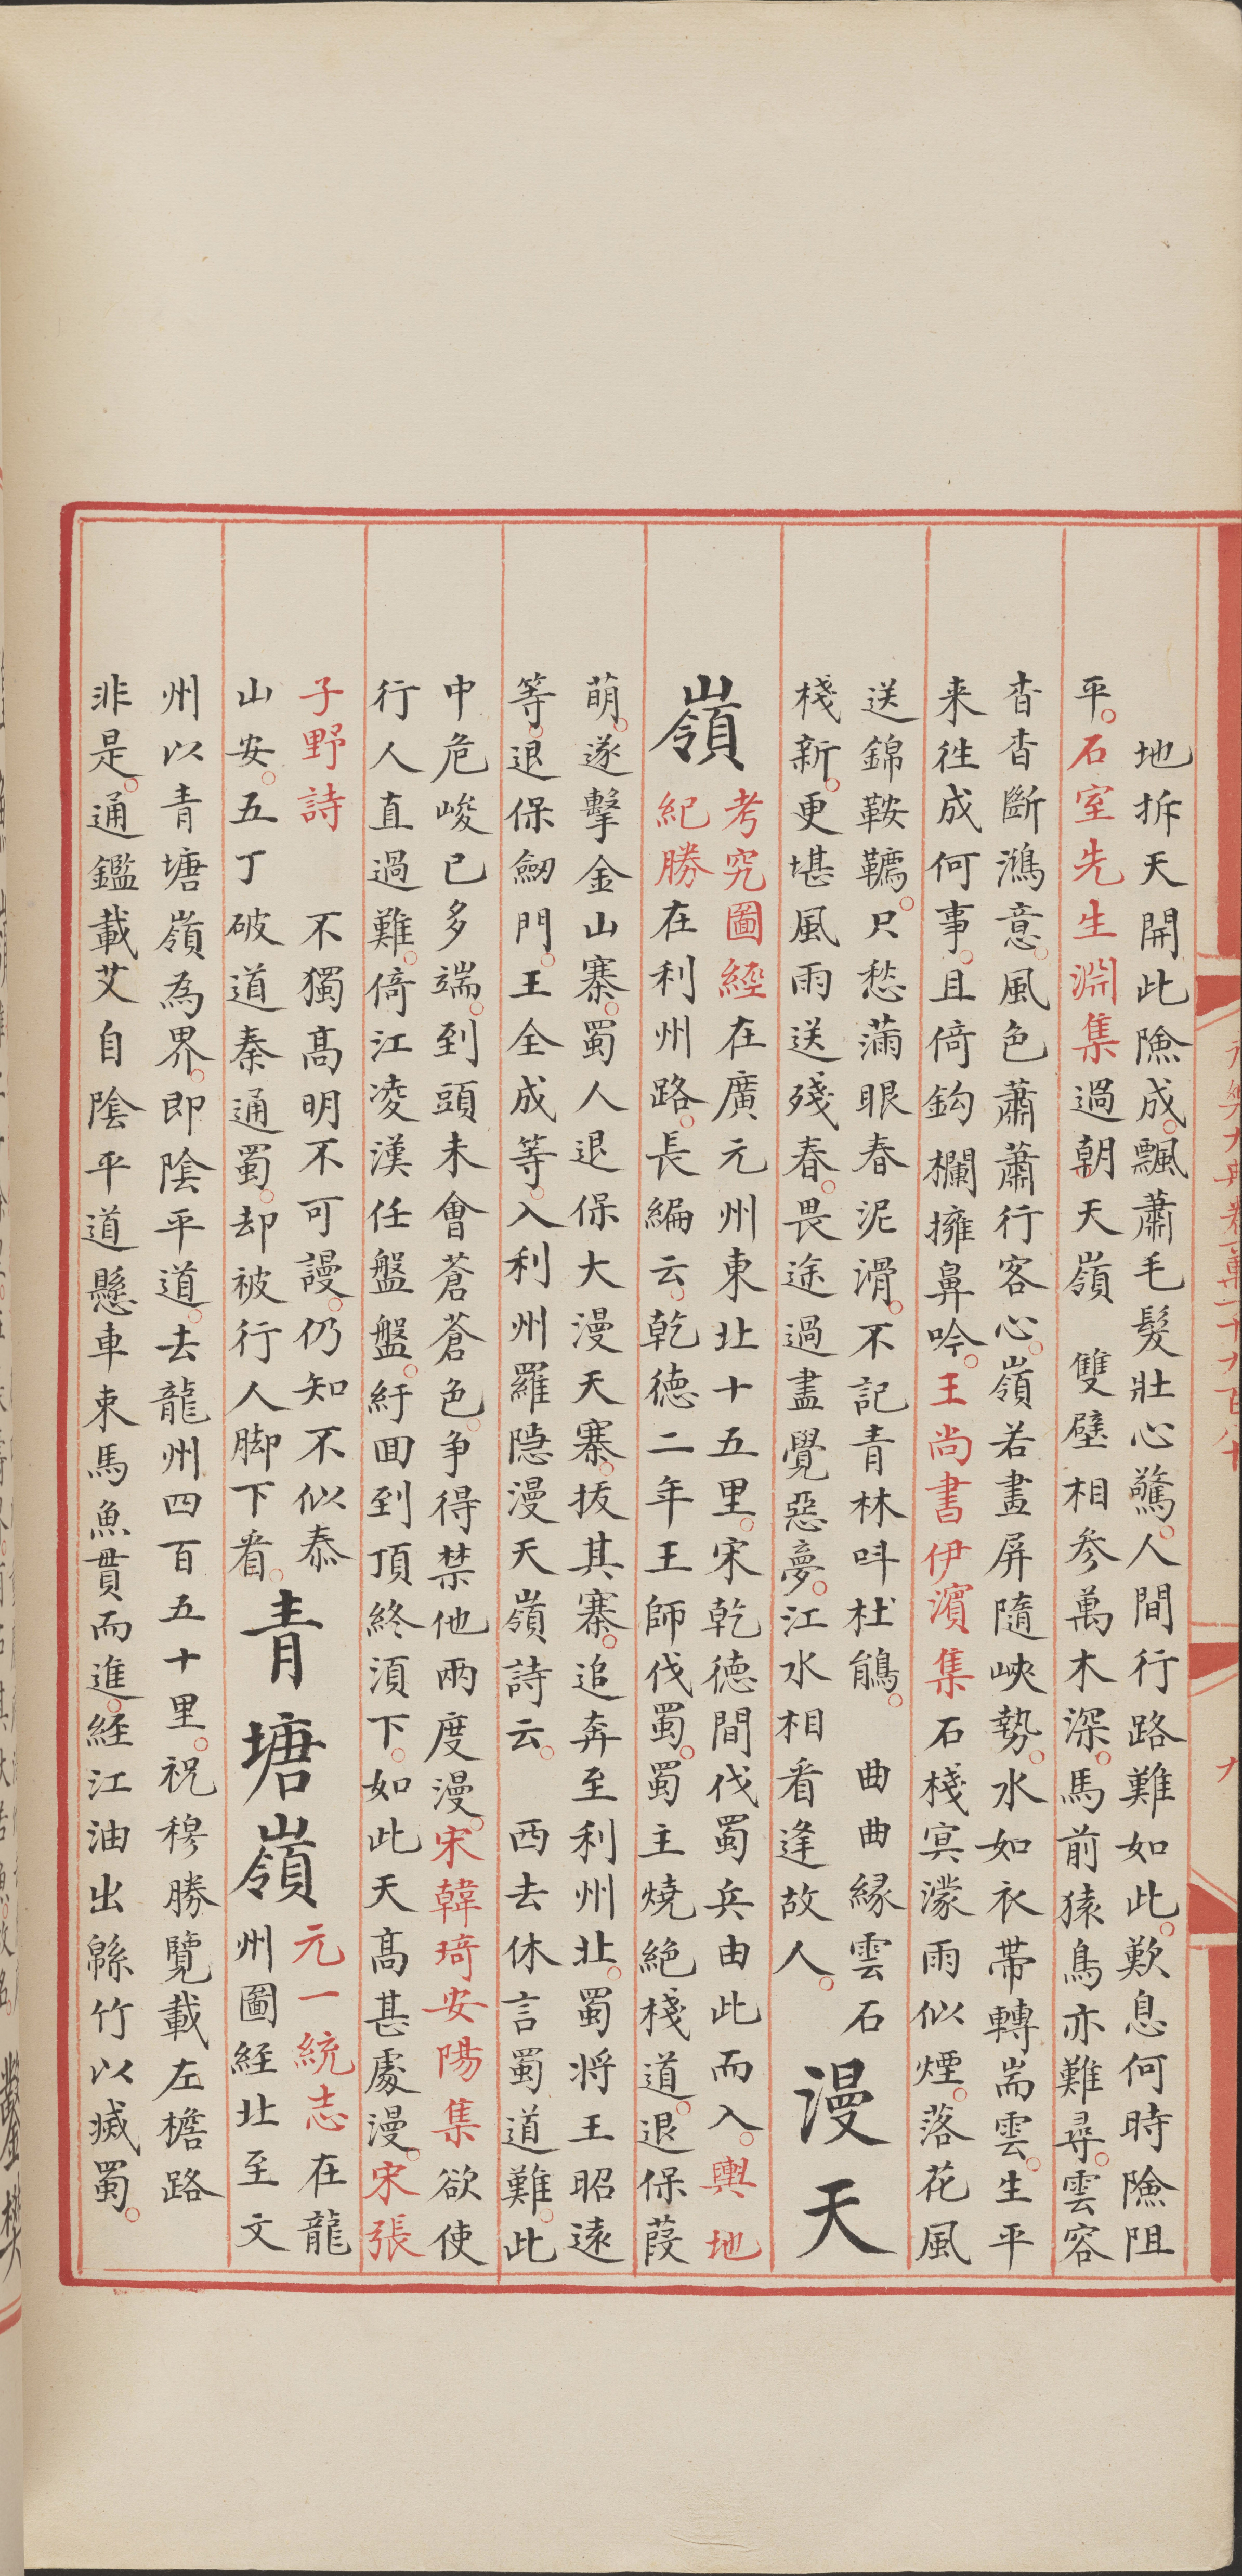 永樂大典卷一萬一千九百八十
九
地拆天開此險成。飄蕭毛髮壯心驚。人間行路難如此。歎息何時險阻
平。石室先生淵集過朝天嶺　雙壁相參萬木深。馬前猿鳥亦難尋。雲容
杳杳斷鴻意。風色蕭蕭行客心。嶺若畫屏隨峽勢。水如衣帶轉岩雲。生平
来往成何事。且倚鈎欄擁鼻吟。王尚書伊濱集石棧㝠濛雨似煙。落花風
送錦鞍韉。只愁滿眼春泥滑。不記青林呌杜鵑。　曲曲緣雲石
棧新。更堪風雨送殘春。畏途過盡覺惡夢。江水相看逢故人。
漫天
嶺
考究圖經在廣元州東北十五里。宋乾德間伐蜀兵由此而入。輿地
紀勝在利州路。長編云。乾德二年王師伐蜀。蜀主燒絶棧道。退保葭
萌。遂擊金山寨。蜀人退保大漫天寨。拔其寨。追奔至利州北。蜀将王昭遠
等。退保劒門。王全成等。入利州羅隐漫天嶺詩云。　西去休言蜀道難。此
中危峻已多端。到頭未會蒼蒼色。争得禁他兩度漫。宋韓琦安陽集欲使
行人直過難。倚江凌漢任盤盤。紆囬到頂終須下。如此天髙甚處漫。宋張
子野詩　不獨髙明不可謾。仍知不似泰
山安。五丁破道秦通蜀。却被行人脚下看。
青塘嶺
元一統志在龍
州圖経北至文
州以青塘嶺為界。即陰平道。去龍州四百五十里。祝穆勝覽載左檐路
非是。通鑑載艾自陰平道懸車束馬魚貫而進。経江油出緜竹以㓕蜀。